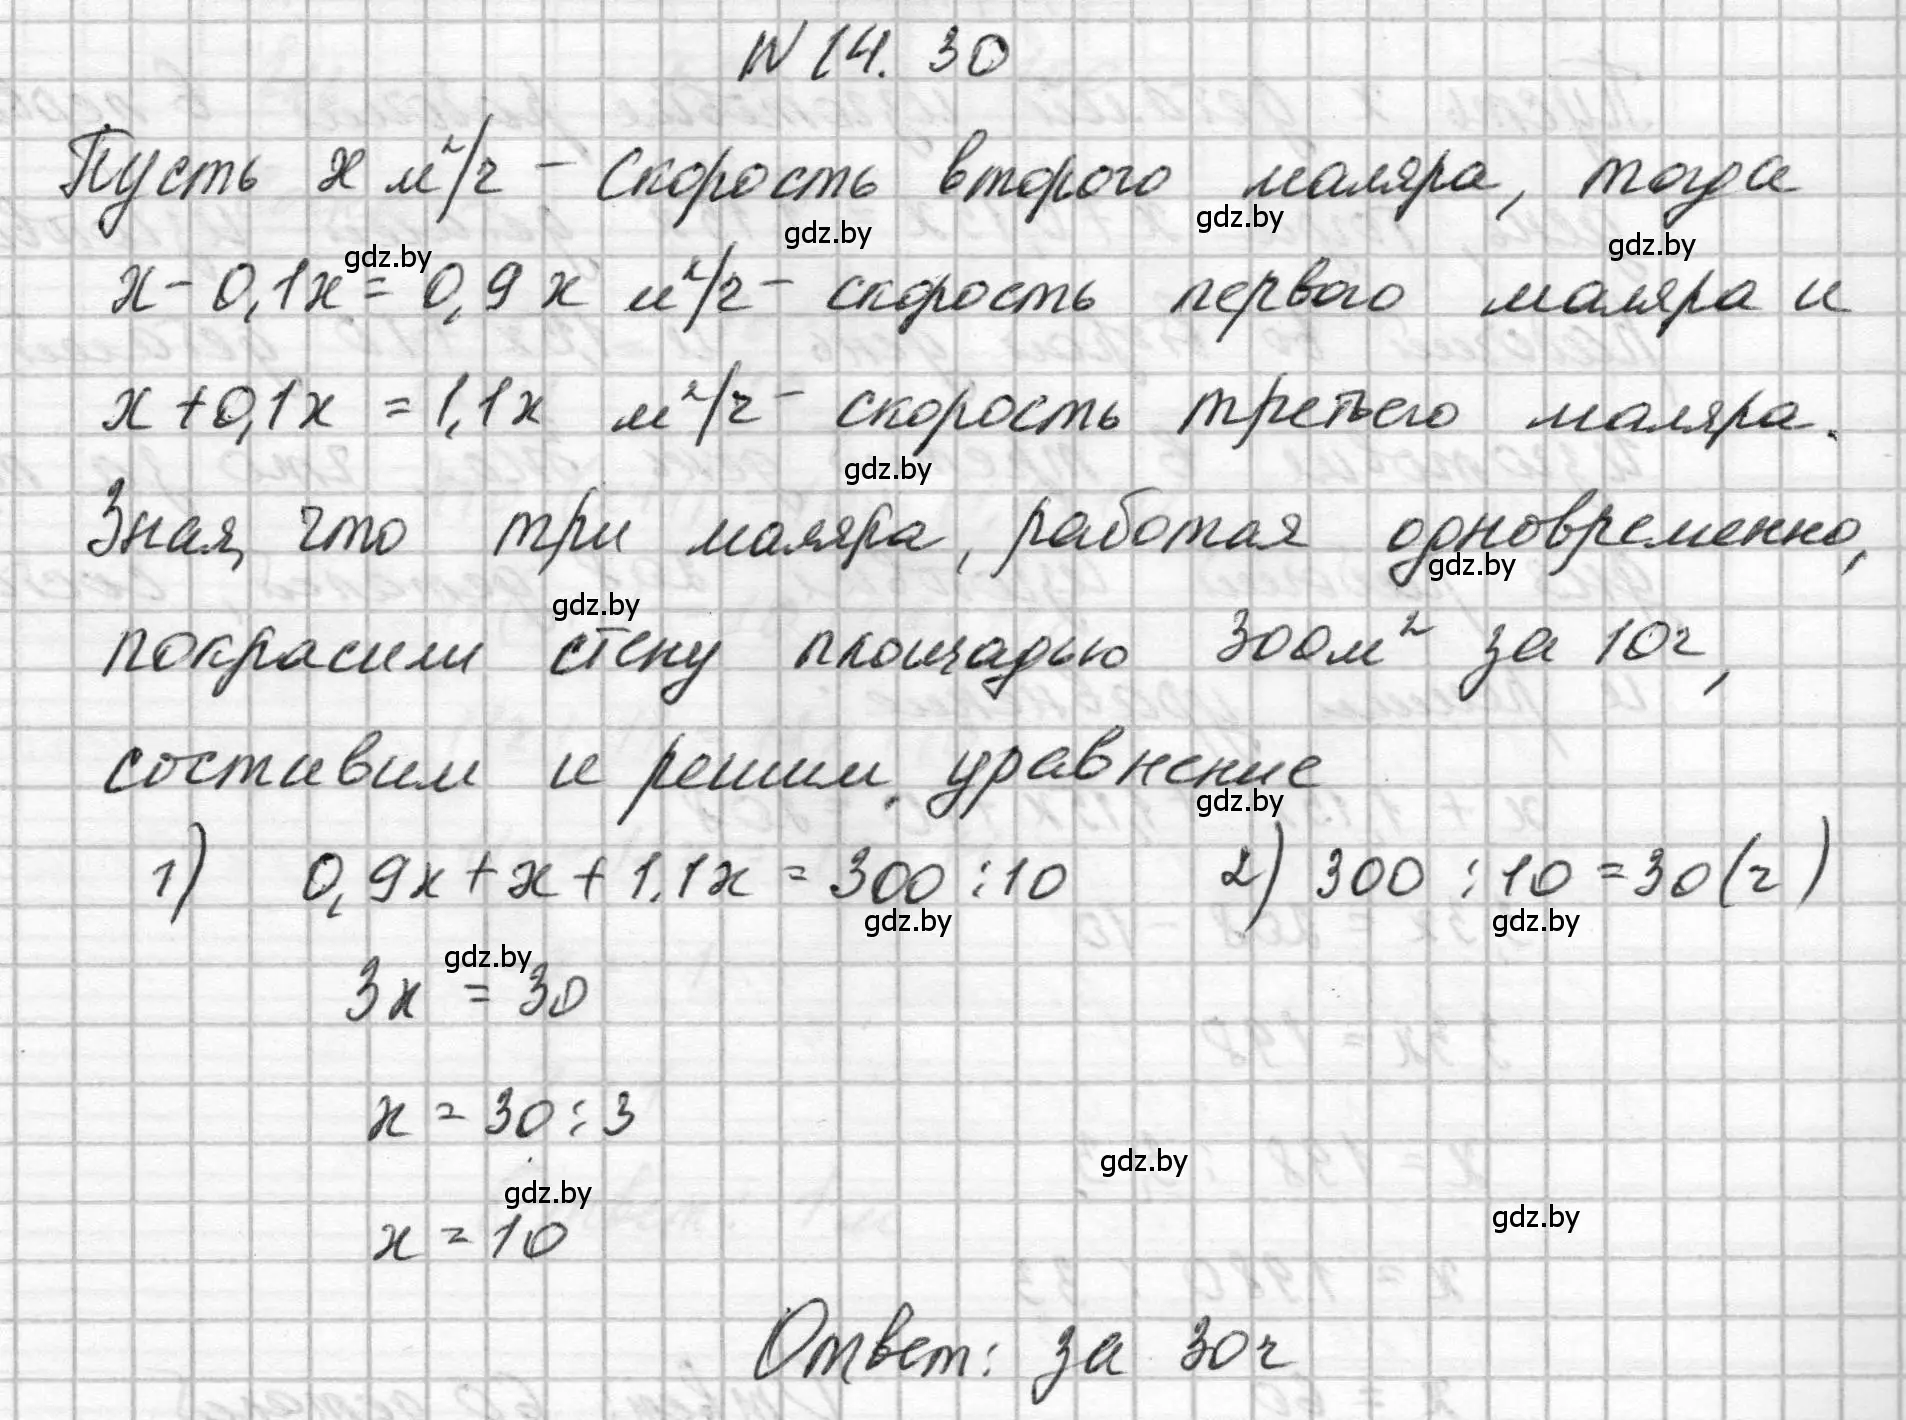 N 14.30
Пусть x м²/ч - скорость второго маляра, тогда
x - 0,1x = 0,9x м²/ч - скорость первого маляра и
x + 0,1x = 1,1x м²/ч - скорость третьего маляра.
Зная, что три маляра, работая одновременно,
покрасили стену площадью 300м² за 10ч,
составим и решим уравнение
1) 0,9x + x + 1,1x = 300 : 10 2) 300 : 10 = 30 (ч)
3x = 30
x = 30 : 3
x = 10
Ответ: за 30ч
gdz.by
gdz.by
gdz.by
gdz.by
gdz.by
gdz.by
gdz.by
gdz.by
gdz.by
gdz.by
gdz.by
gdz.by
gdz.by
gdz.by